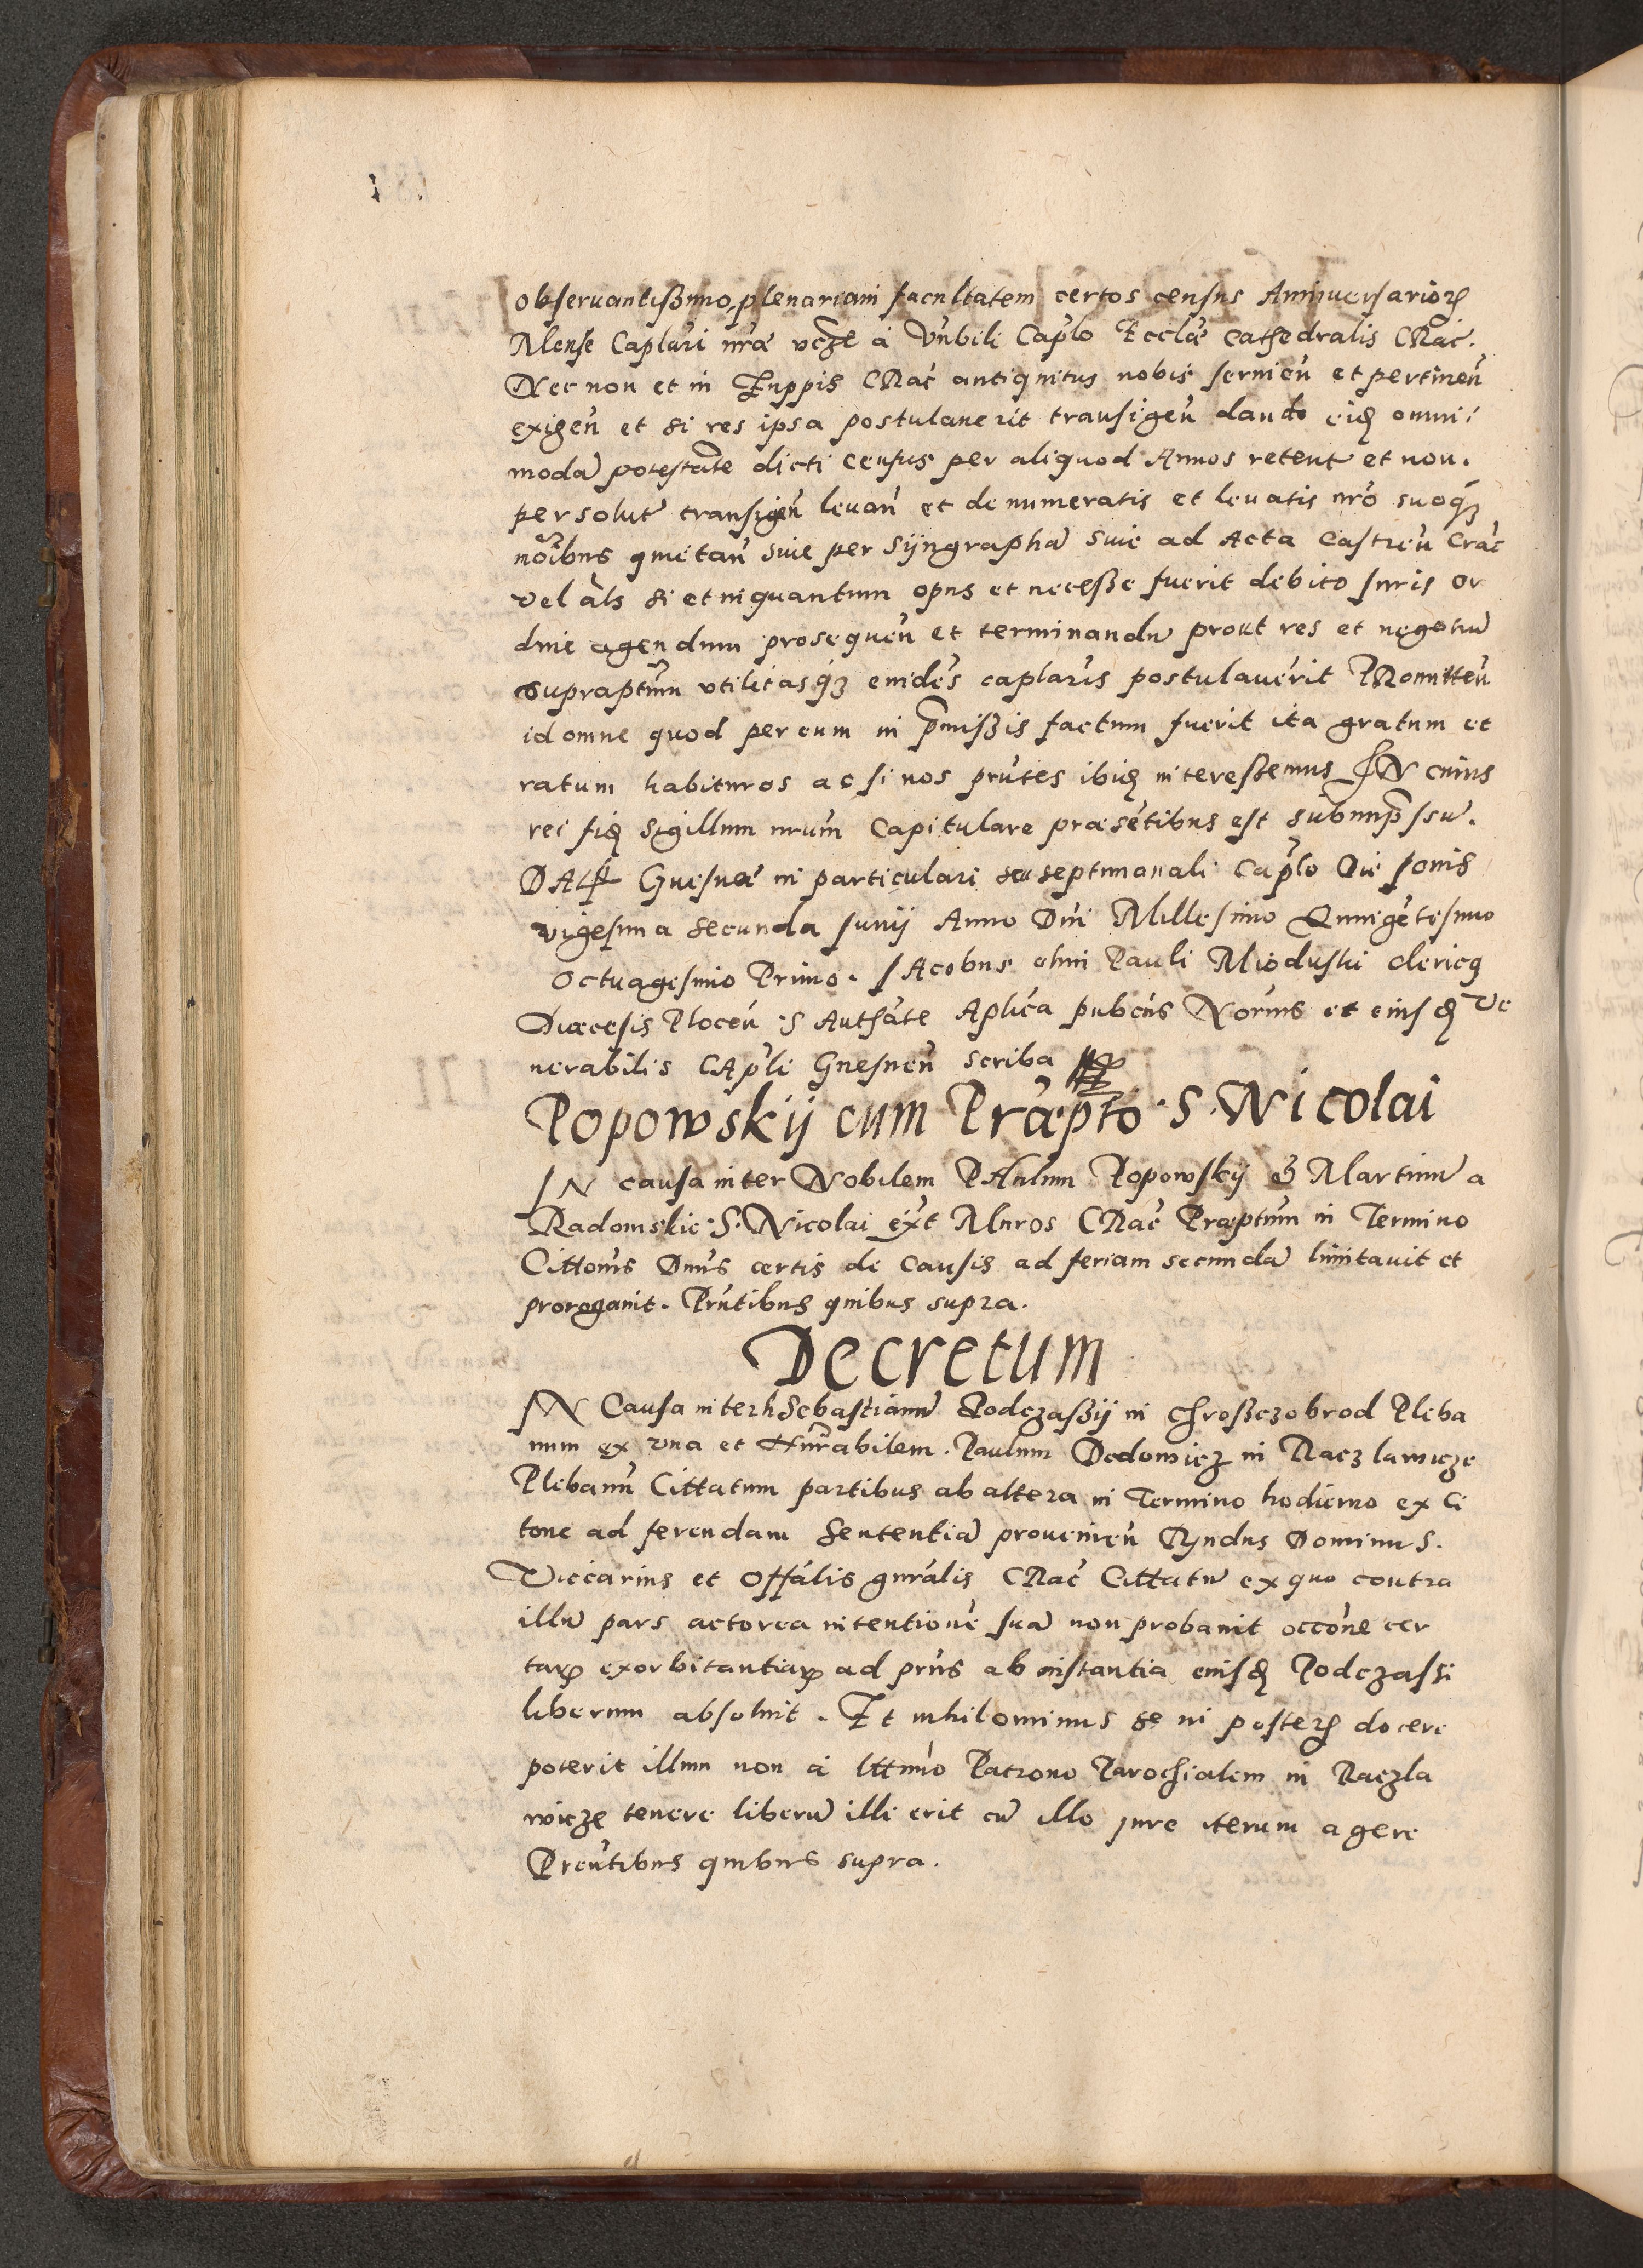 observantißimo, plenariam facultatem certos census Anniversarioꝝ
Mense Caplari nr̃æ vcꝫe à Vnbili Caplo Ecclæ Cathedralis CRac̃.
Nec non et in Zuppis CRac̃ antiquitus nobis servien̄ et pertinen̄
exigen̄ et si res ipsa postulaverit transigen̄ dando eidꝫ omni:
modã potestate dicti Census per aliquod Annos retent̃ et non.
persolut̃ transigen̄ levan̄ et de numeratis et levatis nr̃o suoqꝫ
noĩbus quietan̄ sive per Syngraphã sive ad Acta Castren̄ Crac̃
vel al̃s si et inquantum opus et neceße fuerit debito Iuris or
dine agendum prosequen̄ et terminandũ prout res et negotiũ
supraptũm vtilitasqꝫ eiudẽs caplaris postulaverit PRomitten̄
id omne quod per eum in p̃mißis factum fuerit ita gratum et
ratum habituros ac si nos pñtes ibidꝫ intereßemus IN cuius
rei fidꝫ Sigillum nrum Capitulare præsẽtibus est subimp̃ssũ.
DAtt Gnesnæ in particulari seu septimanali Caplo Die Iovis
vigesima secunda Iunij Anno Dñi Millesimo Quingẽtesimo
Octuagesimo Primo. IAcobus olim Pauli Mioduski clericꝯ
Diæcesis Plocen̄ S Authãte Aplica pubcus Norius et eiusdꝫ Ve
nerabilis CApli Gnesnen̄ Scriba
Popowskij cum Præpto S. Nicolai
IN causa inter Nobilem PAulum Popowskij & Martinũ a
Radomskie S. Nicolai ext̃ Muros CRac̃ Præptum in Termino
Cittonis Dnus certis de causis ad feriam secundã limitavit et
prorogavit. Pñtibus quibus supra.
Decretum
IN Causa inter h Sebastianũ Podczaßij in Chroßczobrod Pleba
num ex vna et Hnrabilem. Paulum Dedowicz in Racz lawicze
Plebanũ Cittatum partibus ab altera in Termino hodierno ex Ci
tone ad ferendam Sententiã provenien̄ Rndus Dominus.
Viccarius et Offãlis gnrãlis CRac̃ Cittatũ ex quo contra
illũ pars actorea intentionẽ suã non probavit occõne cer
taꝝ exorbitantiaꝝ ad pñs ab instantia eiusdꝫ Podczassi
liberum absolvit. Et nihilominus se in posteꝝ docere
poterit illum non à lttimo Patrono Parochialem in Raczla
wicze tenere liberũ illi erit cũ illo jure iterum agere
Prẽntibus quibus supra.